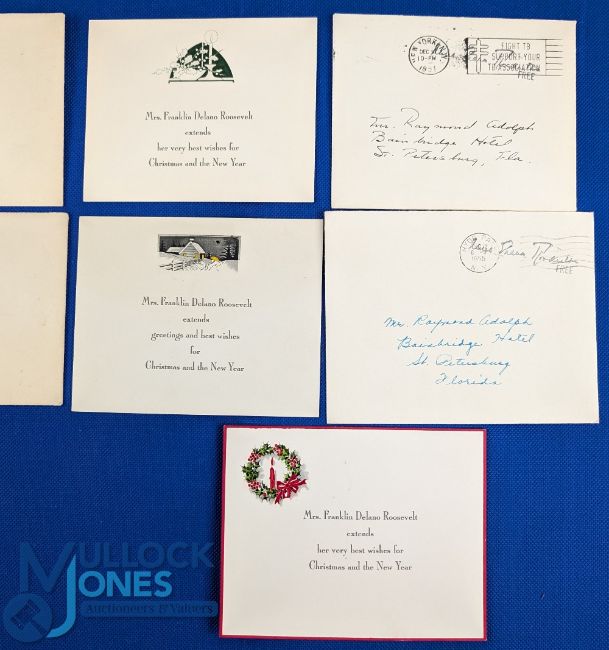 Mrs. Franklin Delano Roosevelt
extends
her very best wishes for
Christmas and the New Year
NEW YORK, N.Y.
DEC
10-PM
1951
FIGHT TB
SUPPORT YOUR
TB ASSOCIATION
FREE
Mr. Raymond Adolph
Bainbridge Hotel
St. Petersburg, Fla.
Mrs. Franklin Delano Roosevelt
extends
greetings and best wishes
for
Christmas and the New Year
N.Y.
FREE
Mr. Raymond Adolph
Bainbridge Hotel
St. Petersburg
Florida
Mrs. Franklin Delano Roosevelt
extends
her very best wishes for
Christmas and the New Year
MULLOCK
JONES
Auctioneers & Valuers